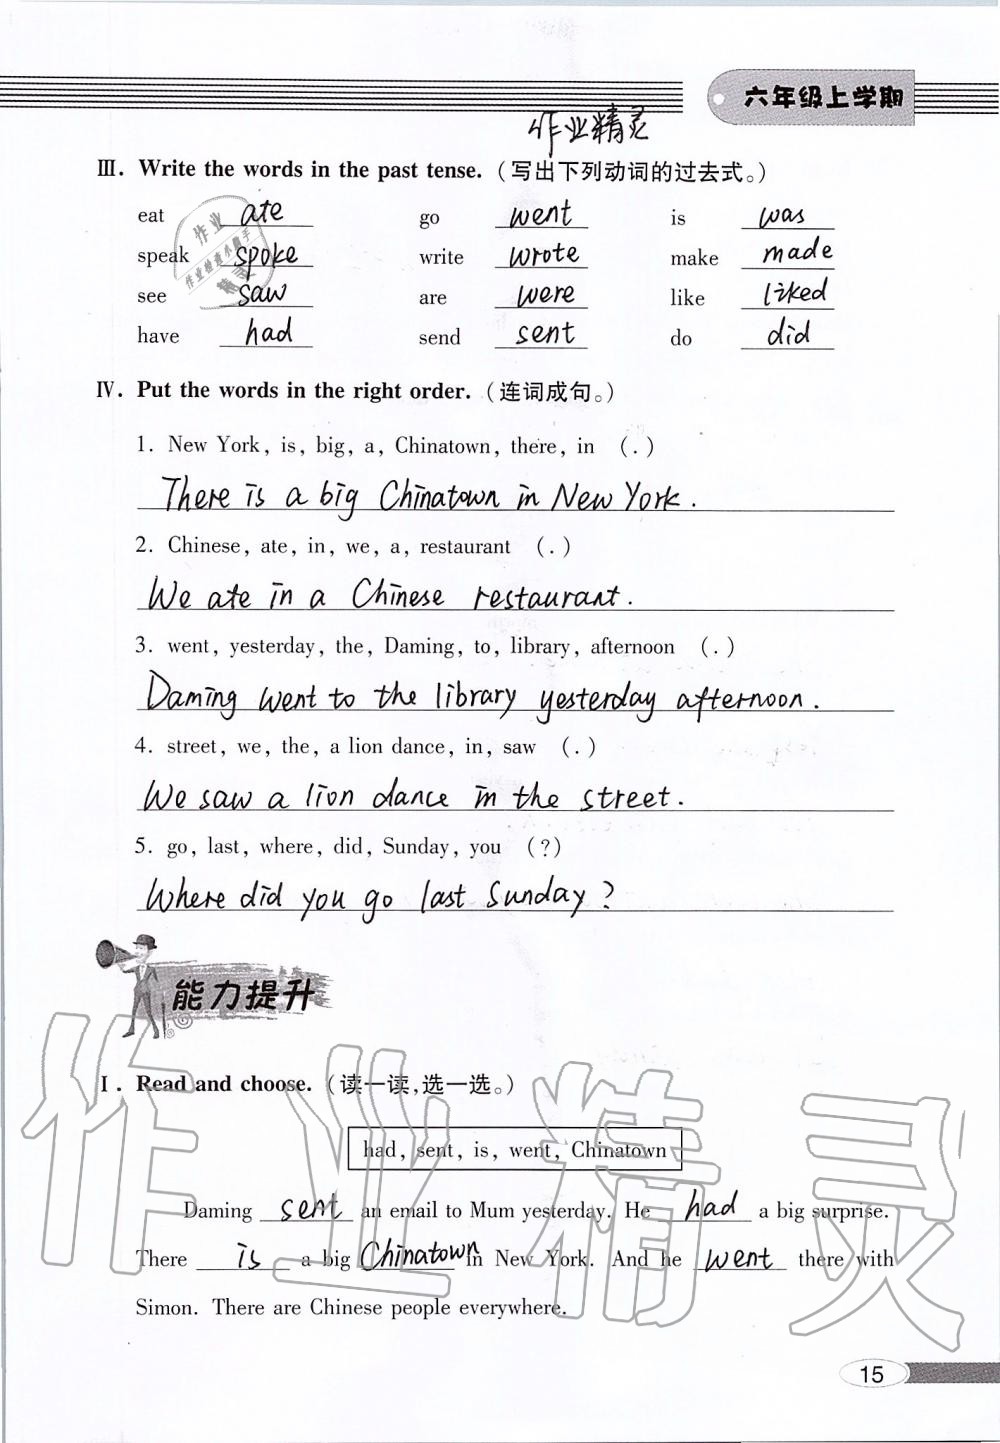 六年级上学期
作业精灵
Ⅲ. Write the words in the past tense.(写出下列动词的过去式。)
eat ate go went is was
speak spoke write wrote make made
see saw are were like liked
have had send sent do did
作业
作业检查小助手
精灵
Ⅳ. Put the words in the right order.(连词成句。)
1. New York, is, big, a, Chinatown, there, in (.)
There is a big Chinatown in New York.
2. Chinese, ate, in, we, a, restaurant (.)
We ate in a Chinese restaurant.
3. went, yesterday, the, Daming, to, library, afternoon (.)
Daming went to the library yesterday afternoon.
4. street, we, the, a lion dance, in, saw (.)
We saw a lion dance in the street.
5. go, last, where, did, Sunday, you (?)
Where did you go last Sunday?
能力提升
Ⅰ. Read and choose.(读一读,选一选。)
had, sent, is, went, Chinatown
Daming sent an email to Mum yesterday. He had a big surprise.
There is a big Chinatown in New York. And he went there with
Simon. There are Chinese people everywhere.
作业精灵
15